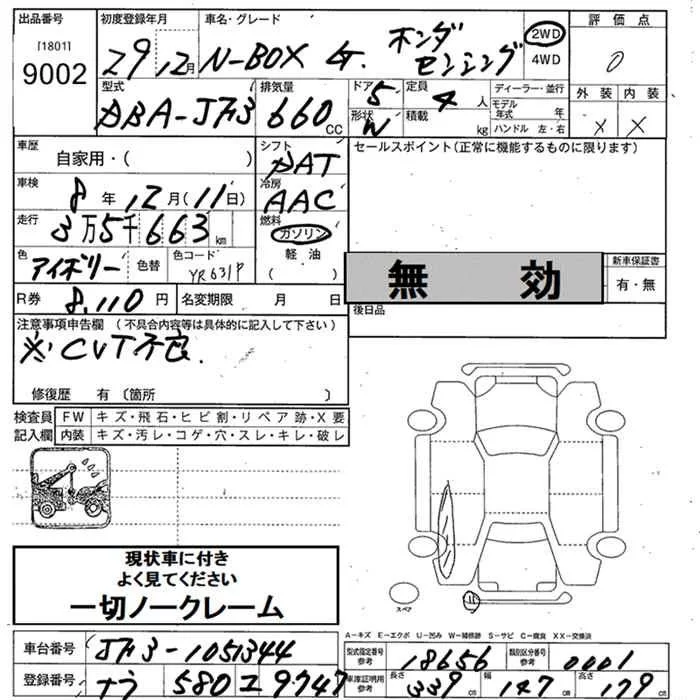 出品番号 初度登録年月 車名・グレード 評価点
[1801]
9002 29年12月 N-BOX G・ホンダセンシング 2WD 4WD 0
型式 排気量 ドア 定員 ディーラー・並行 外装 内装
DBA-JF3 660CC 5 4人 モデル年式 年 × ×
形状 W 積載 kg ハンドル 左・右
車歴 シフト セールスポイント(正常に機能するものに限ります)
自家用・( ) DAT
車検 8年12月(11日) 冷房 AAC
走行 3万5千663km 燃料 ガソリン
色 アイボリー 色替 色コード YR631P 軽油
( )
無効 新車保証書
有・無
R券 8,110円 名変期限 月 日 後日品
注意事項申告欄 (不具合内容等は具体的に記入して下さい)
※CVT不良.
修復歴 有 〔箇所 〕
検査員 FW キズ・飛石・ヒビ割・リペア跡・X要
記入欄 内装 キズ・汚レ・コゲ・穴・スレ・キレ・破レ
現状車に付き
よく見てください
一切ノークレーム
スペア
A-キズ E-エクボ U-凹み W-補修跡 S-サビ C-腐食 XX-交換済
車台番号 JF3-1051344 型式指定番号 参考 18656 類別区分番号 参考 0001
登録番号 ナラ 580 ユ 9747 車庫証明用 参考 長さ 339cm 幅 147cm 高さ 179cm